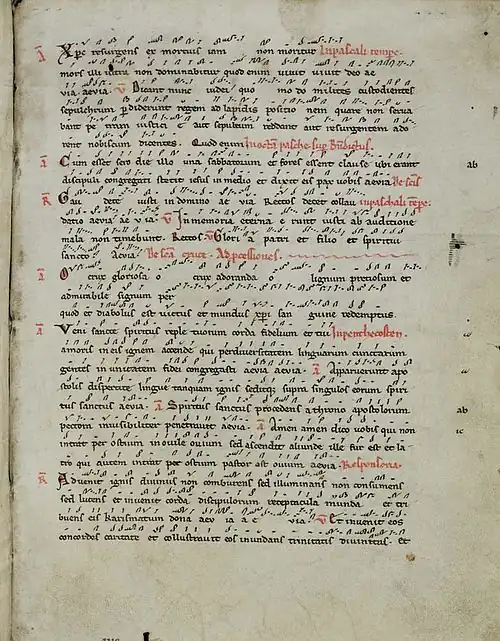 A Xpc resurgens ex mortuis iam non moritur In pascali tempe.
mors illi ultra non dominabitur quod enim uiuit uiuit deo ae
uia aeuia. V Dicant nunc iudei quo modo milites custodientes
sepulchrum perdiderunt regem ad lapidis positio nem quare non serua
bant petram iusticie aut sepultum reddant aut resurgentem ado
rent nobiscum dicentes. Quod enim In octa pasche sup Bndictus
A Cum esset sero die illo una sabbatorum et fores essent clause ubi erant ab
discipuli congregati stetit iesus in medio et dixit eis pax uobis aeuia De scis
R Gau dete iusti in domino ae uia Rectos decet collau in paschali tepe.
datio aeuia ae uia. V In memoria eterna erunt iusti ab auditione
mala non timebunt. Rectos V Glori a patri et filio et spiritui
sancto Aeuia De sca cruce Ad pcessiones.
A O crux gloriosa o crux adoranda o lignum preciosum et
admirabile signum per
quod et diabolus est uictus et mundus xpi san guine redemptus.
A Veni sancte spiritus reple tuorum corda fidelium et tui In penthecosten
amoris in eis ignem accende qui per diuersitatem linguarum cunctarum
gentes in unitatem fidei congregasti aeuia aeuia. A Apparuerunt apo
stolis dispertite lingue tanquam ignis seditque supra singulos eorum spiri
tus sanctus aeuia. A Spiritus sanctus procedens a throno apostolorum ab
pectora inuisibiliter penetrauit aeuia. A Amen amen dico uobis qui non
intrat per ostium in ouile ouium sed ascendit aliunde ille fur est et la
tro qui autem intrat per ostium pastor est ouium aeuia. Responsoria.
R Aduenit ignis diuinus non comburens sed illuminans non consumens
sed lucens et inuenit corda discipulorum receptacula munda et tri
buens eis karismatum dona aeu ia a e uia. V Et inuenit eos
concordes caritate et collustrauit eos inundans trinitatis diuinitas. Et